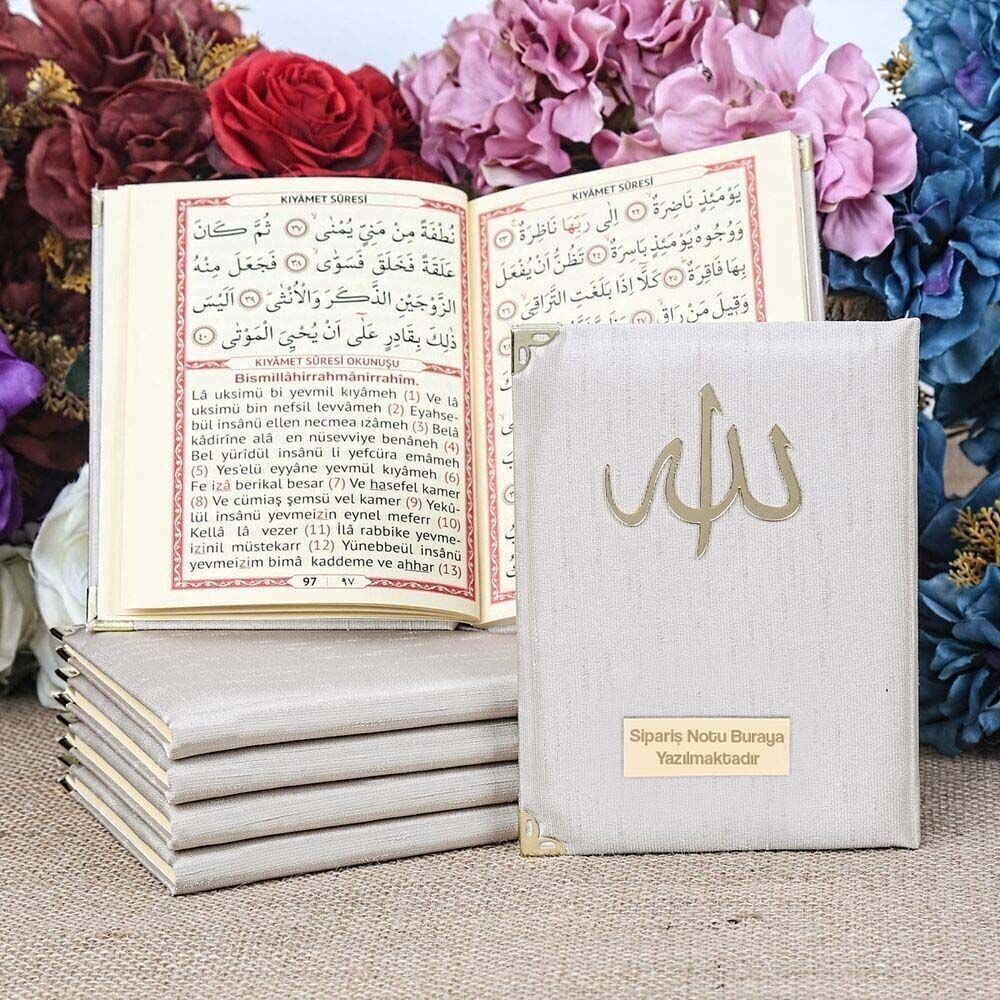 KIYÂMET SÛRESİ
نُطْفَةً مِنْ مَنِيٍّ يُمْنٰىۙ ﴿٣٧﴾ ثُمَّ كَانَ
عَلَقَةً فَخَلَقَ فَسَوّٰىۙ ﴿٣٨﴾ فَجَعَلَ مِنْهُ
الزَّوْجَيْنِ الذَّكَرَ وَالْاُنْثٰىۜ ﴿٣٩﴾ اَلَيْسَ
ذٰلِكَ بِقَادِرٍ عَلٰٓى اَنْ يُحْيِيَ الْمَوْتٰى ﴿٤٠﴾
KIYÂMET SÛRESİ OKUNUŞU
Bismillâhirrahmânirrahîm.
Lâ uksimü bi yevmil kıyâmeh (1) Ve lâ
uksimü bin nefsil levvâmeh (2) Eyahse-
bül insânü ellen necmea ızâmeh (3) Belâ
kâdirîne alâ en nüsevviye benâneh (4)
Bel yürîdül insânü li yefcüra emâmeh
(5) Yes'elü eyyâne yevmül kıyâmeh (6)
Fe izâ berikal besar (7) Ve hasefel kamer
(8) Ve cümiaş şemsü vel kamer (9) Yekû-
lül insânü yevmeizin eynel meferr (10)
Kellâ lâ vezer (11) İlâ rabbike yevme-
izinil müstekarr (12) Yünebbeül insânü
yevmeizim bimâ kaddeme ve ahhar (13)
97 ٩٧
KIYÂMET SÛRESİ
يَوْمَئِذٍ نَاضِرَةٌۙ ﴿٢٢﴾ اِلٰى رَبِّهَا نَاظِرَةٌۚ ﴿٢٣﴾
وَوُجُوهٌ يَوْمَئِذٍ بَاسِرَةٌۙ ﴿٢٤﴾ تَظُنُّ اَنْ يُفْعَلَ
بِهَا فَاقِرَةٌۜ ﴿٢٥﴾ كَلَّٓا اِذَا بَلَغَتِ التَّرَاقِيَۙ ﴿٢٦﴾
وَق۪يلَ مَنْ رَاقٍۙ ﴿٢٧﴾
الله
Sipariş Notu Buraya
Yazılmaktadır